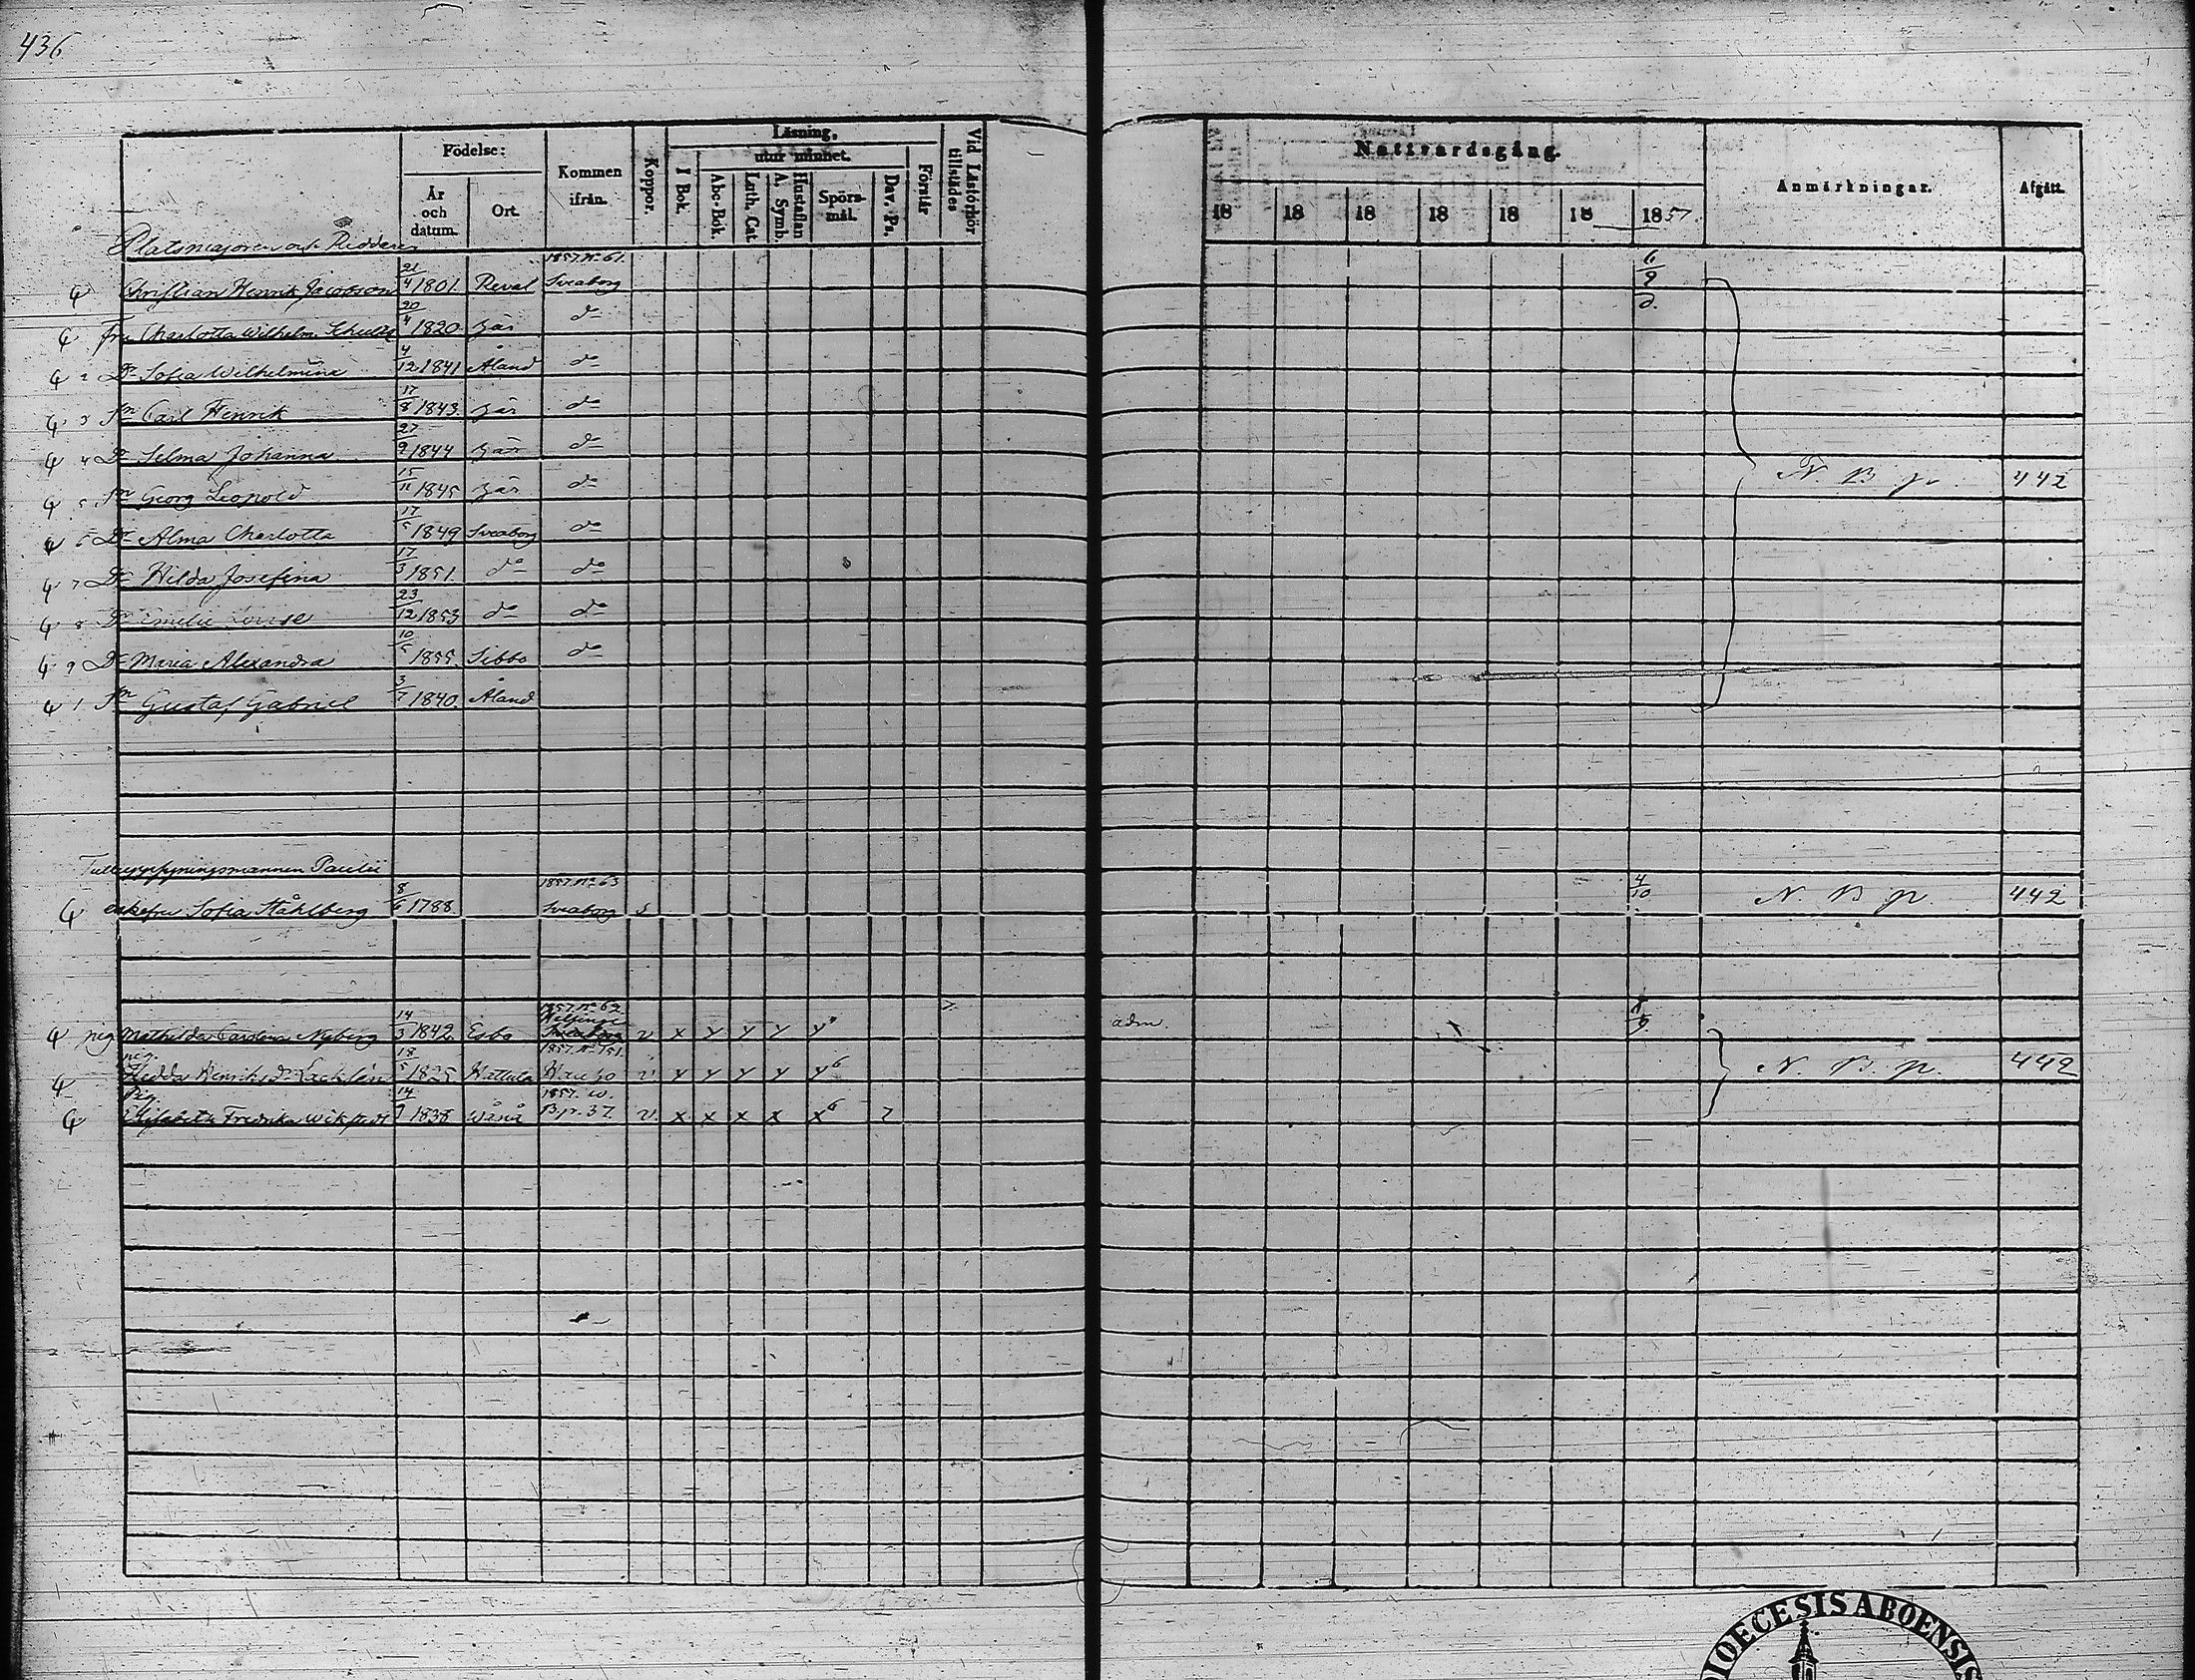 436
Födelse: Kommen ifrån. Koppor. Läsning, Vid Läsförhör tillstädes Nattvardsgång. Anmärkningar. Afgått.
År och datum. Ort. I Bok. utur minnet. Förstår
Abc-Bok. Luth. Cat. A. Symb. Hustaflan Spörs-mål. Dav. Ps. 18 18 18 18 18 18 1857.
Platsmajoren och Riddaren
1857. No 61.
Christian Henrik Jacobson 21/4 1801. Reval Sveaborg 6/9
Fru Charlotta Wilhelm. Schultz 20/4 1820. här do
2 Dr Sofia Wilhelmina 4/12 1841 Åland do
3 Sn Carl Henrik 17/8 1843. här do
4 Dr Selma Johanna 27/9 1844 här do
5 Sn Georg Leopold 15/11 1845 här do N. B. p. 442
6 Dr Alma Charlotta 17/5 1849 Sveaborg do
7 Dr Hilda Josefina 17/3 1851. do do
8 Dr Emelie Louise 23/12 1853 do do
9 Dr Maria Alexandra 10/5 1855. Sibbo do
1 Sn Gustaf Gabriel 3/7 1840. Åland
Paulii
1857. No 63
enkefru Sofia Ståhlberg 8/6 1788. Sveaborg s 4/10 N. B. p. 442
1857. No 62
pig. Mathilda Carolina Nyberg 14/3 1842. Esbo v x y y y y adm.
pig. 1857. No 151.
Hedda Henriksdr 18/5 1825 Hattula v. y y y y y6 N. B. p. 442
Pig. 1857. w.
Elisabeth Fredrika Wikstedt 14 1838 Wånå B. p. 37. v. x x x x x6
DIOECESIS ABOENSIS